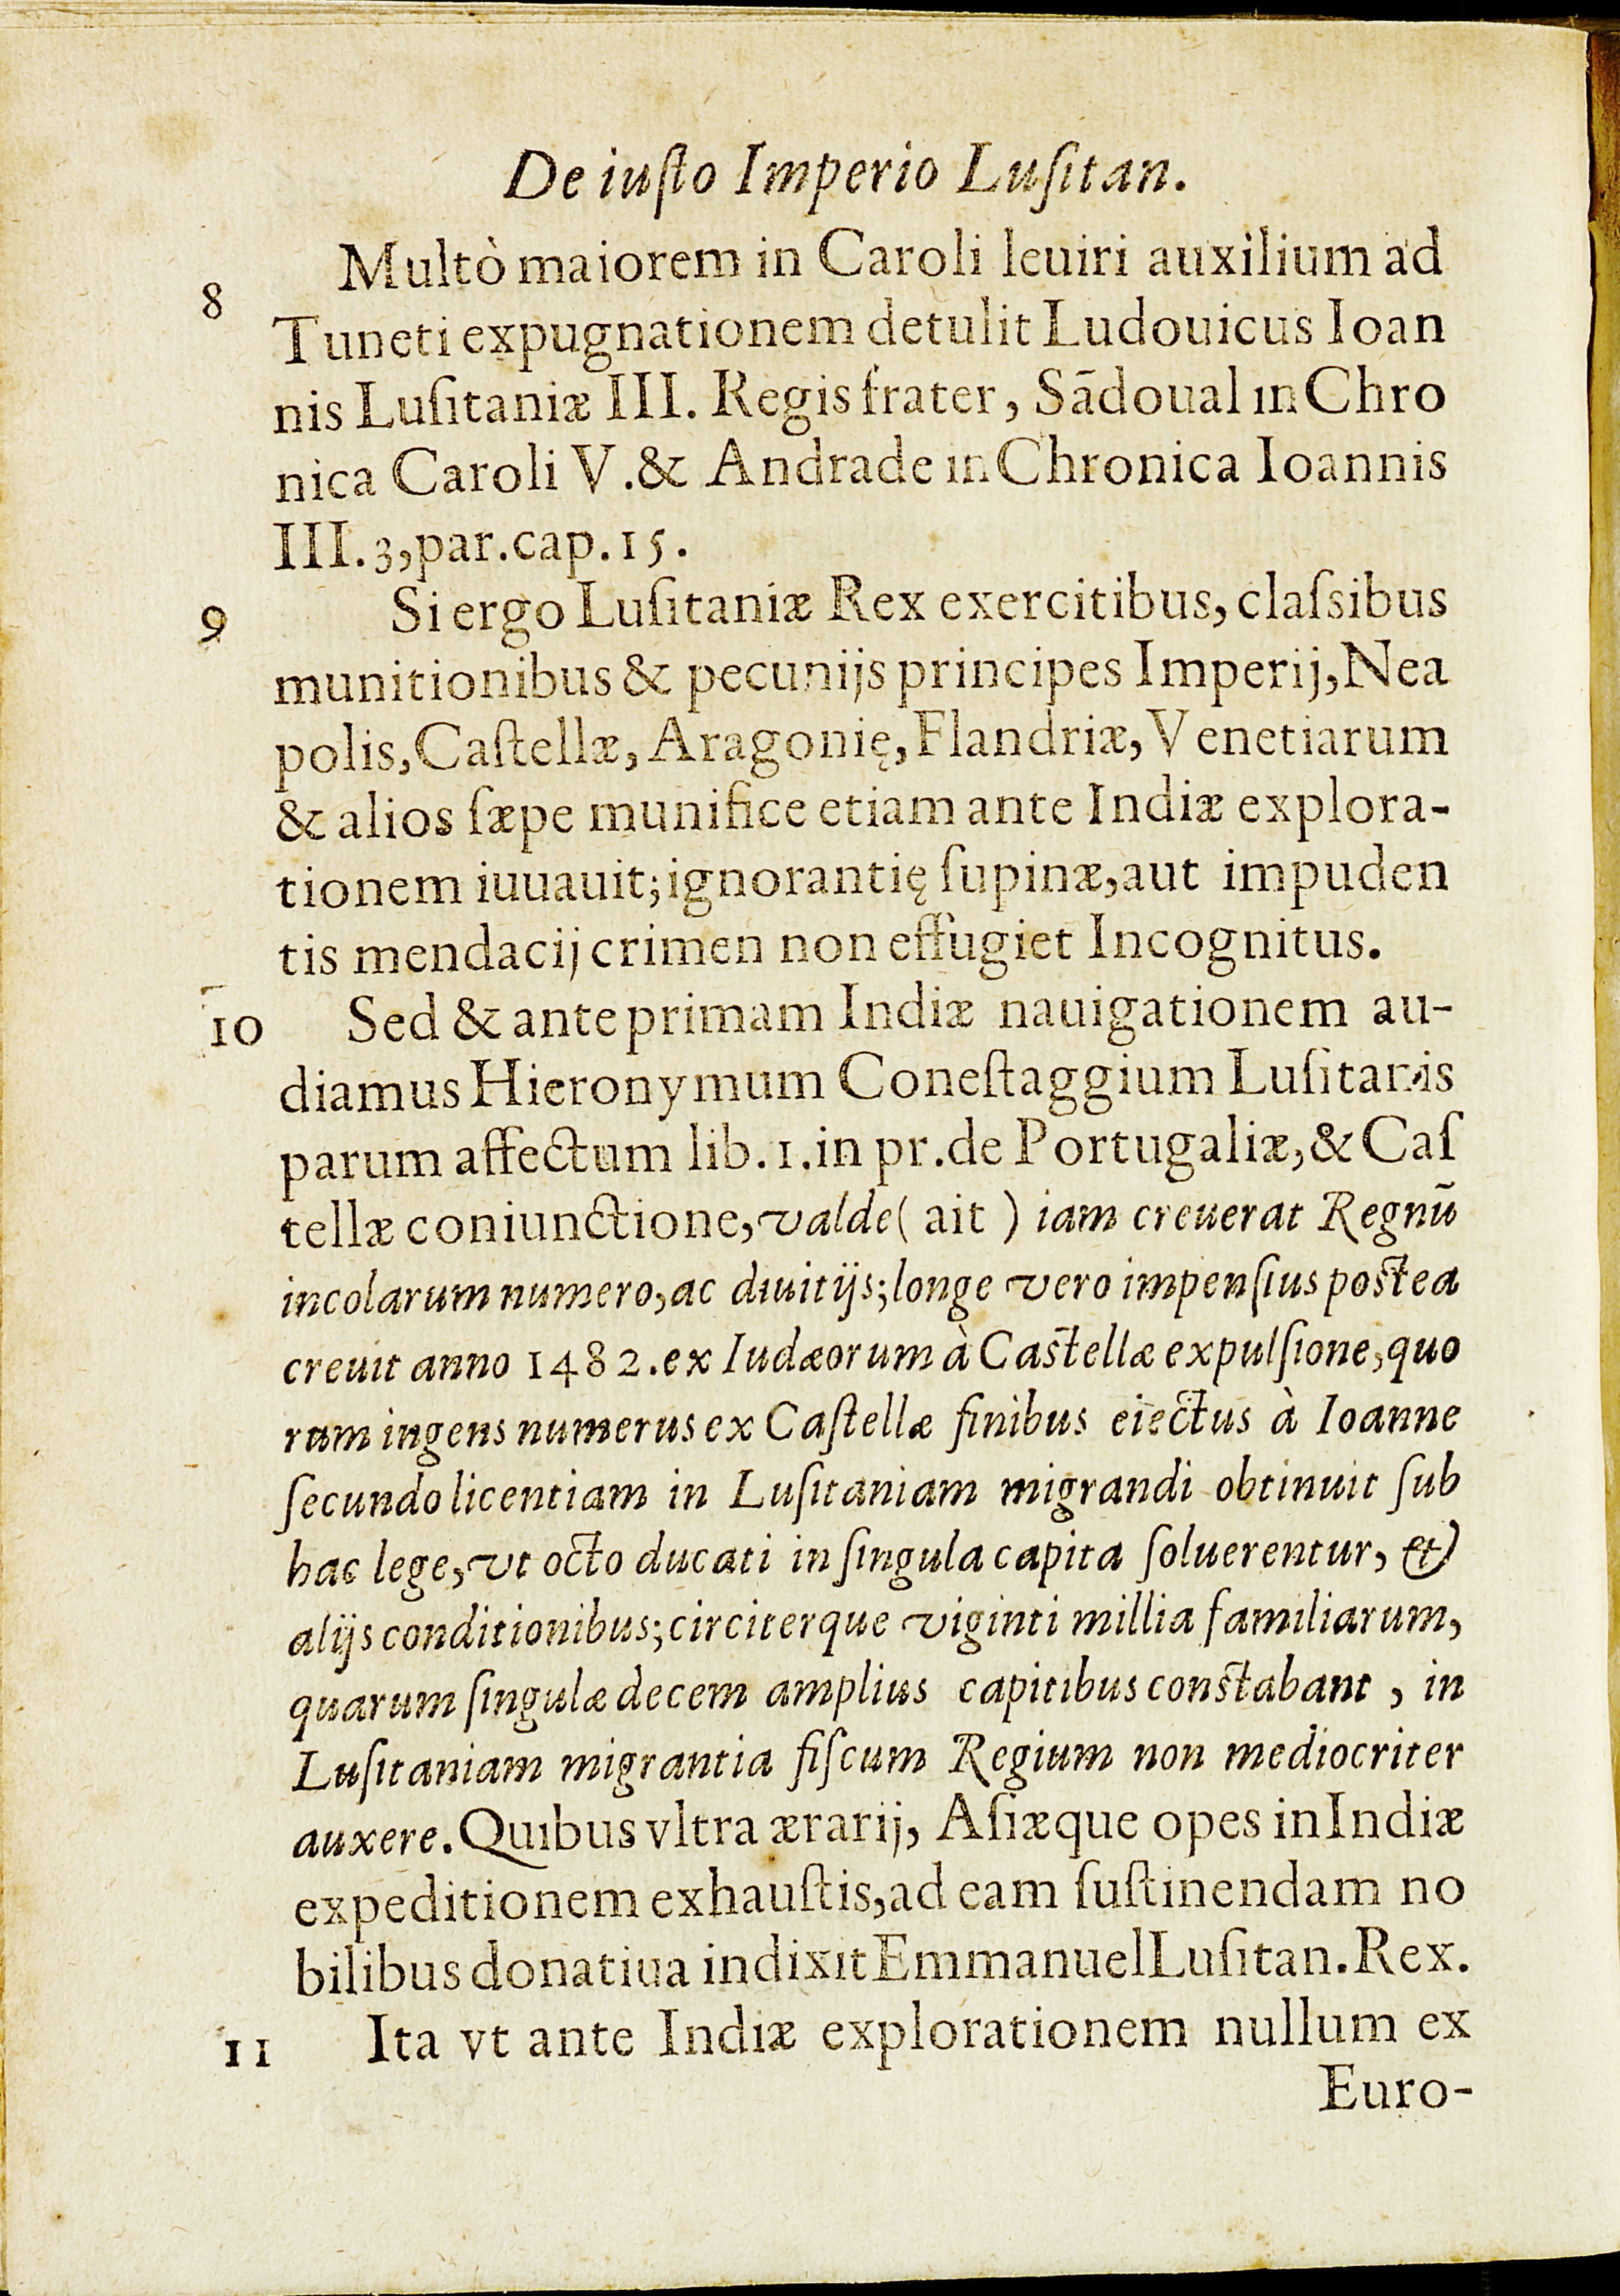 De iuſto Imperio Luſitan.
8 Multò maiorem in Caroli leuiri auxilium ad
Tuneti expugnationem detulit Ludouicus Ioan
nis Luſitaniæ III. Regis frater, Sādoual in Chro
nica Caroli V. & Andrade in Chronica Ioannis
III. 3, par. cap. 15.
9 Si ergo Luſitaniæ Rex exercitibus, claſsibus
munitionibus & pecunijs principes Imperij, Nea
polis, Caſtellæ, Aragonię, Flandriæ, Venetiarum
& alios ſæpe munifice etiam ante Indiæ explora-
tionem iuuauit; ignorantię ſupinæ, aut impuden
tis mendacij crimen non effugiet Incognitus.
10 Sed & ante primam Indiæ nauigationem au-
diamus Hieronymum Coneſtaggium Luſitanis
parum affectum lib. 1. in pr. de Portugaliæ, & Caſ
tellæ coniunctione, valde ( ait ) iam creuerat Regnū
incolarum numero, ac diuitijs; longe vero impenſius poſtea
creuit anno 1482. ex Iudæorum à Caſtellæ expulſione, quo
rum ingens numerus ex Caſtellæ finibus eiectus à Ioanne
ſecundo licentiam in Luſitaniam migrandi obtinuit ſub
hac lege, vt octo ducati in ſingula capita ſoluerentur, &
alijs conditionibus; circiterque viginti millia familiarum,
quarum ſingulæ decem amplius capitibus conſtabant, in
Luſitaniam migrantia fiſcum Regium non mediocriter
auxere. Quibus vltra ærarij, Aſiæque opes in Indiæ
expeditionem exhauſtis, ad eam ſuſtinendam no
bilibus donatiua indixit Emmanuel Luſitan. Rex.
11 Ita vt ante Indiæ explorationem nullum ex
Euro-